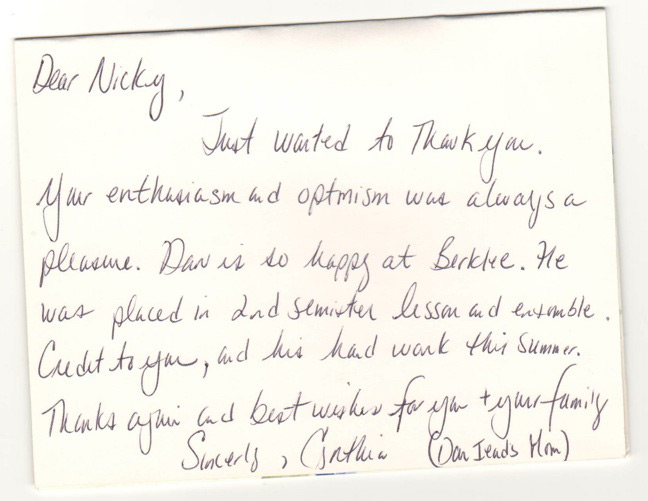 Dear Nicky,
Just wanted to Thank you.
Your enthusiasm and optmism was always a
pleasure. Dan is so happy at Berklee. He
was placed in 2nd semister lesson and ensemble.
Credit to you, and his hard work this summer.
Thanks again and best wishes for you + your family
Sincerly, Cynthia (Dan Mom)